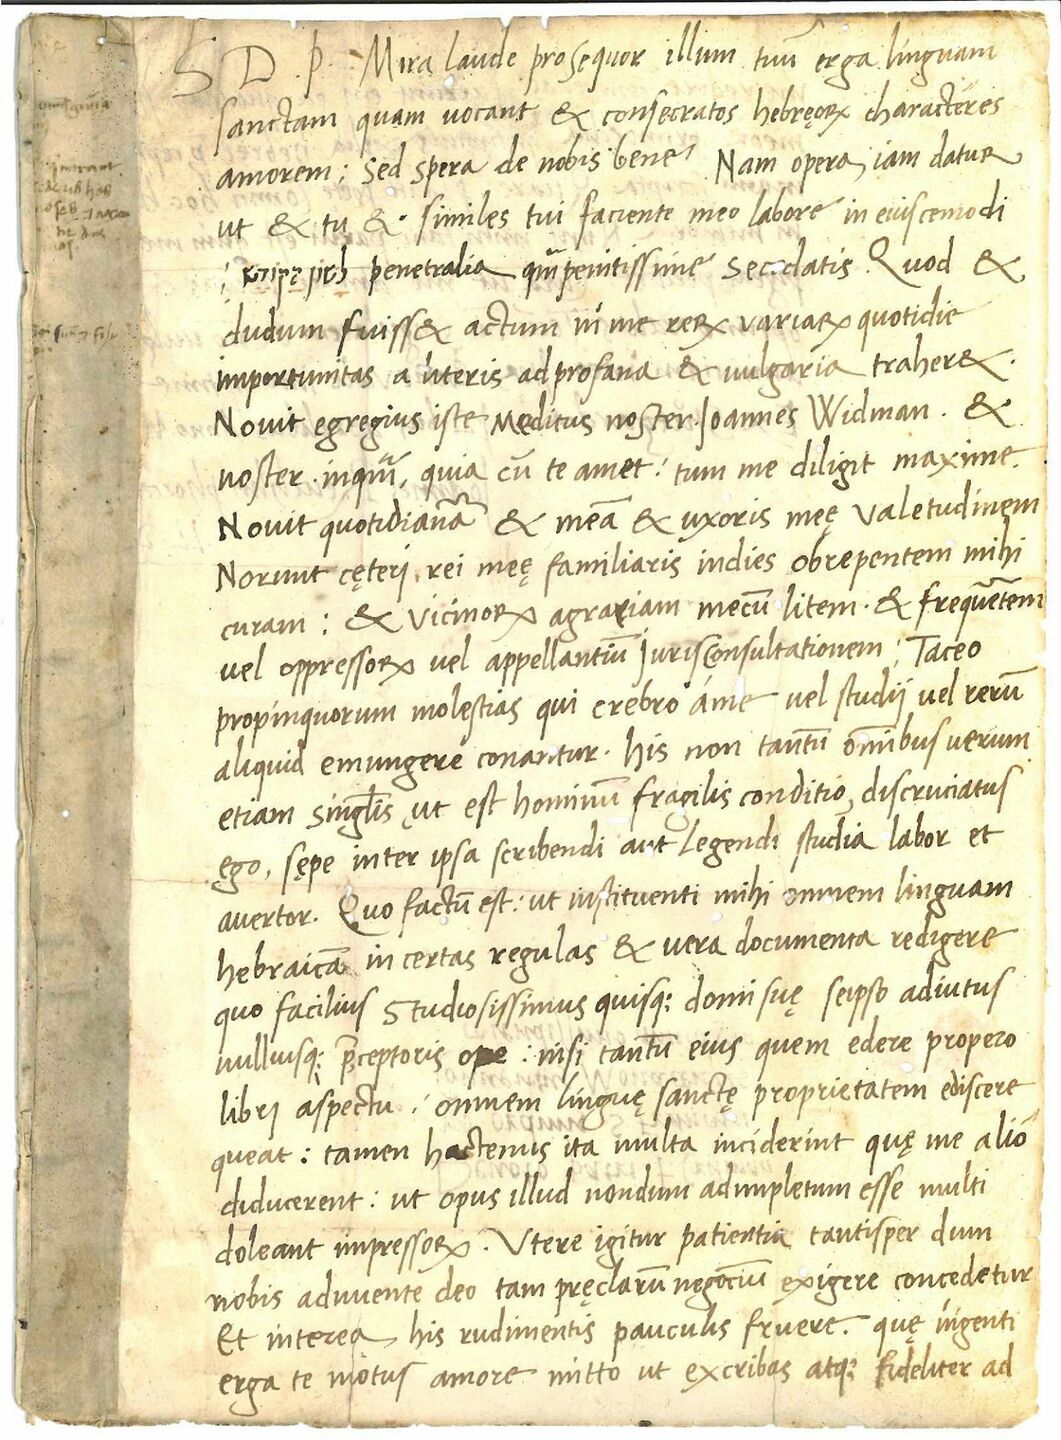 S D . P . Mira laude prosequor illum tuū erga linguam
sanctam quam uocant & consecratos hebręoꝝ characteres
amorem : sed spera de nobis bene Nam opera iam datur
ut & tu & similes tui faciente meo labore in eiuscemodi
penetralia penitissime Quod &
dudum fuisset actum ni me reꝝ variaꝝ quotidie
importunitas a literis ad profana & uulgaria traheret.
Nouit egregius iste Meditus noster Joannes Widman . &
noster . inquā, quia cū te amet : tum me diligit maxime.
Nouit quotidianā & meā & uxoris meę valetudinem
Norunt cęteri rei meę familiaris indies obrepentem mihi
curam : & vicinoꝝ agrariam mecū litem . & frequētem
vel oppressoꝝ vel appellantiū Jurisconsultationem ; Taceo
propinquorum molestias qui crebro a me vel studij vel rerū
aliquid emungere conantur . his non tantū omībus verum
etiam singlis ut est hominū fragilis conditio, discruciatus
ego, sępe inter ipsa scribendi aut Legendi studia labor et
auertor. Quo factū est : ut instituenti mihi omnem linguam
hebraicā in certas regulas & vera documenta redigere
quo facilius Studiosissimus quisqꝫ domi suę seipso adiutus
nulliusqꝫ p̄ceptoris ope : nisi tantū eius quem edere propero
libri aspectu : omnem linguę sanctę proprietatem ediscere
queat : tamen hactenus ita multa inciderint quę me alio
diducerent : ut opus illud nondum adimpletum esse multi
doleant impressoꝝ . Vtere igitur patientia tantisper dum
nobis adiuuente deo tam pręclarū negociū exigere concedetur
Et interea his rudimentis pauculis fruere. quę ingenti
erga te motus amore mitto ut excribas atqꝫ fideliter ad